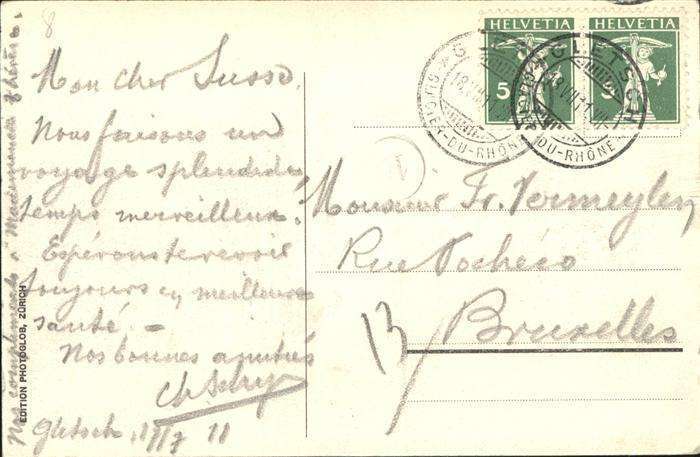 8
Mon cher Susse.
Nous faisons un
voyage splendide,
temps merveilleux.
Espérons te revoir
toujours en meilleure
santé. —
Nos bonnes amitiés
Gletsch, 17/7 11
Nos compliments à Mademoiselle
EDITION PHOTOGLOB, ZÜRICH
HELVETIA HELVETIA
5 5
GLETSCH
18.VII.11
(GLACIER-DU-RHÔNE)
1
Monsieur Fr. Vermeylen
Rue Pachéco
13
Bruxelles